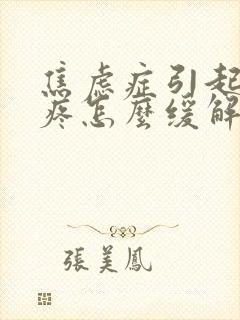 焦虑症引起
疼怎麼缓解
張美鳳